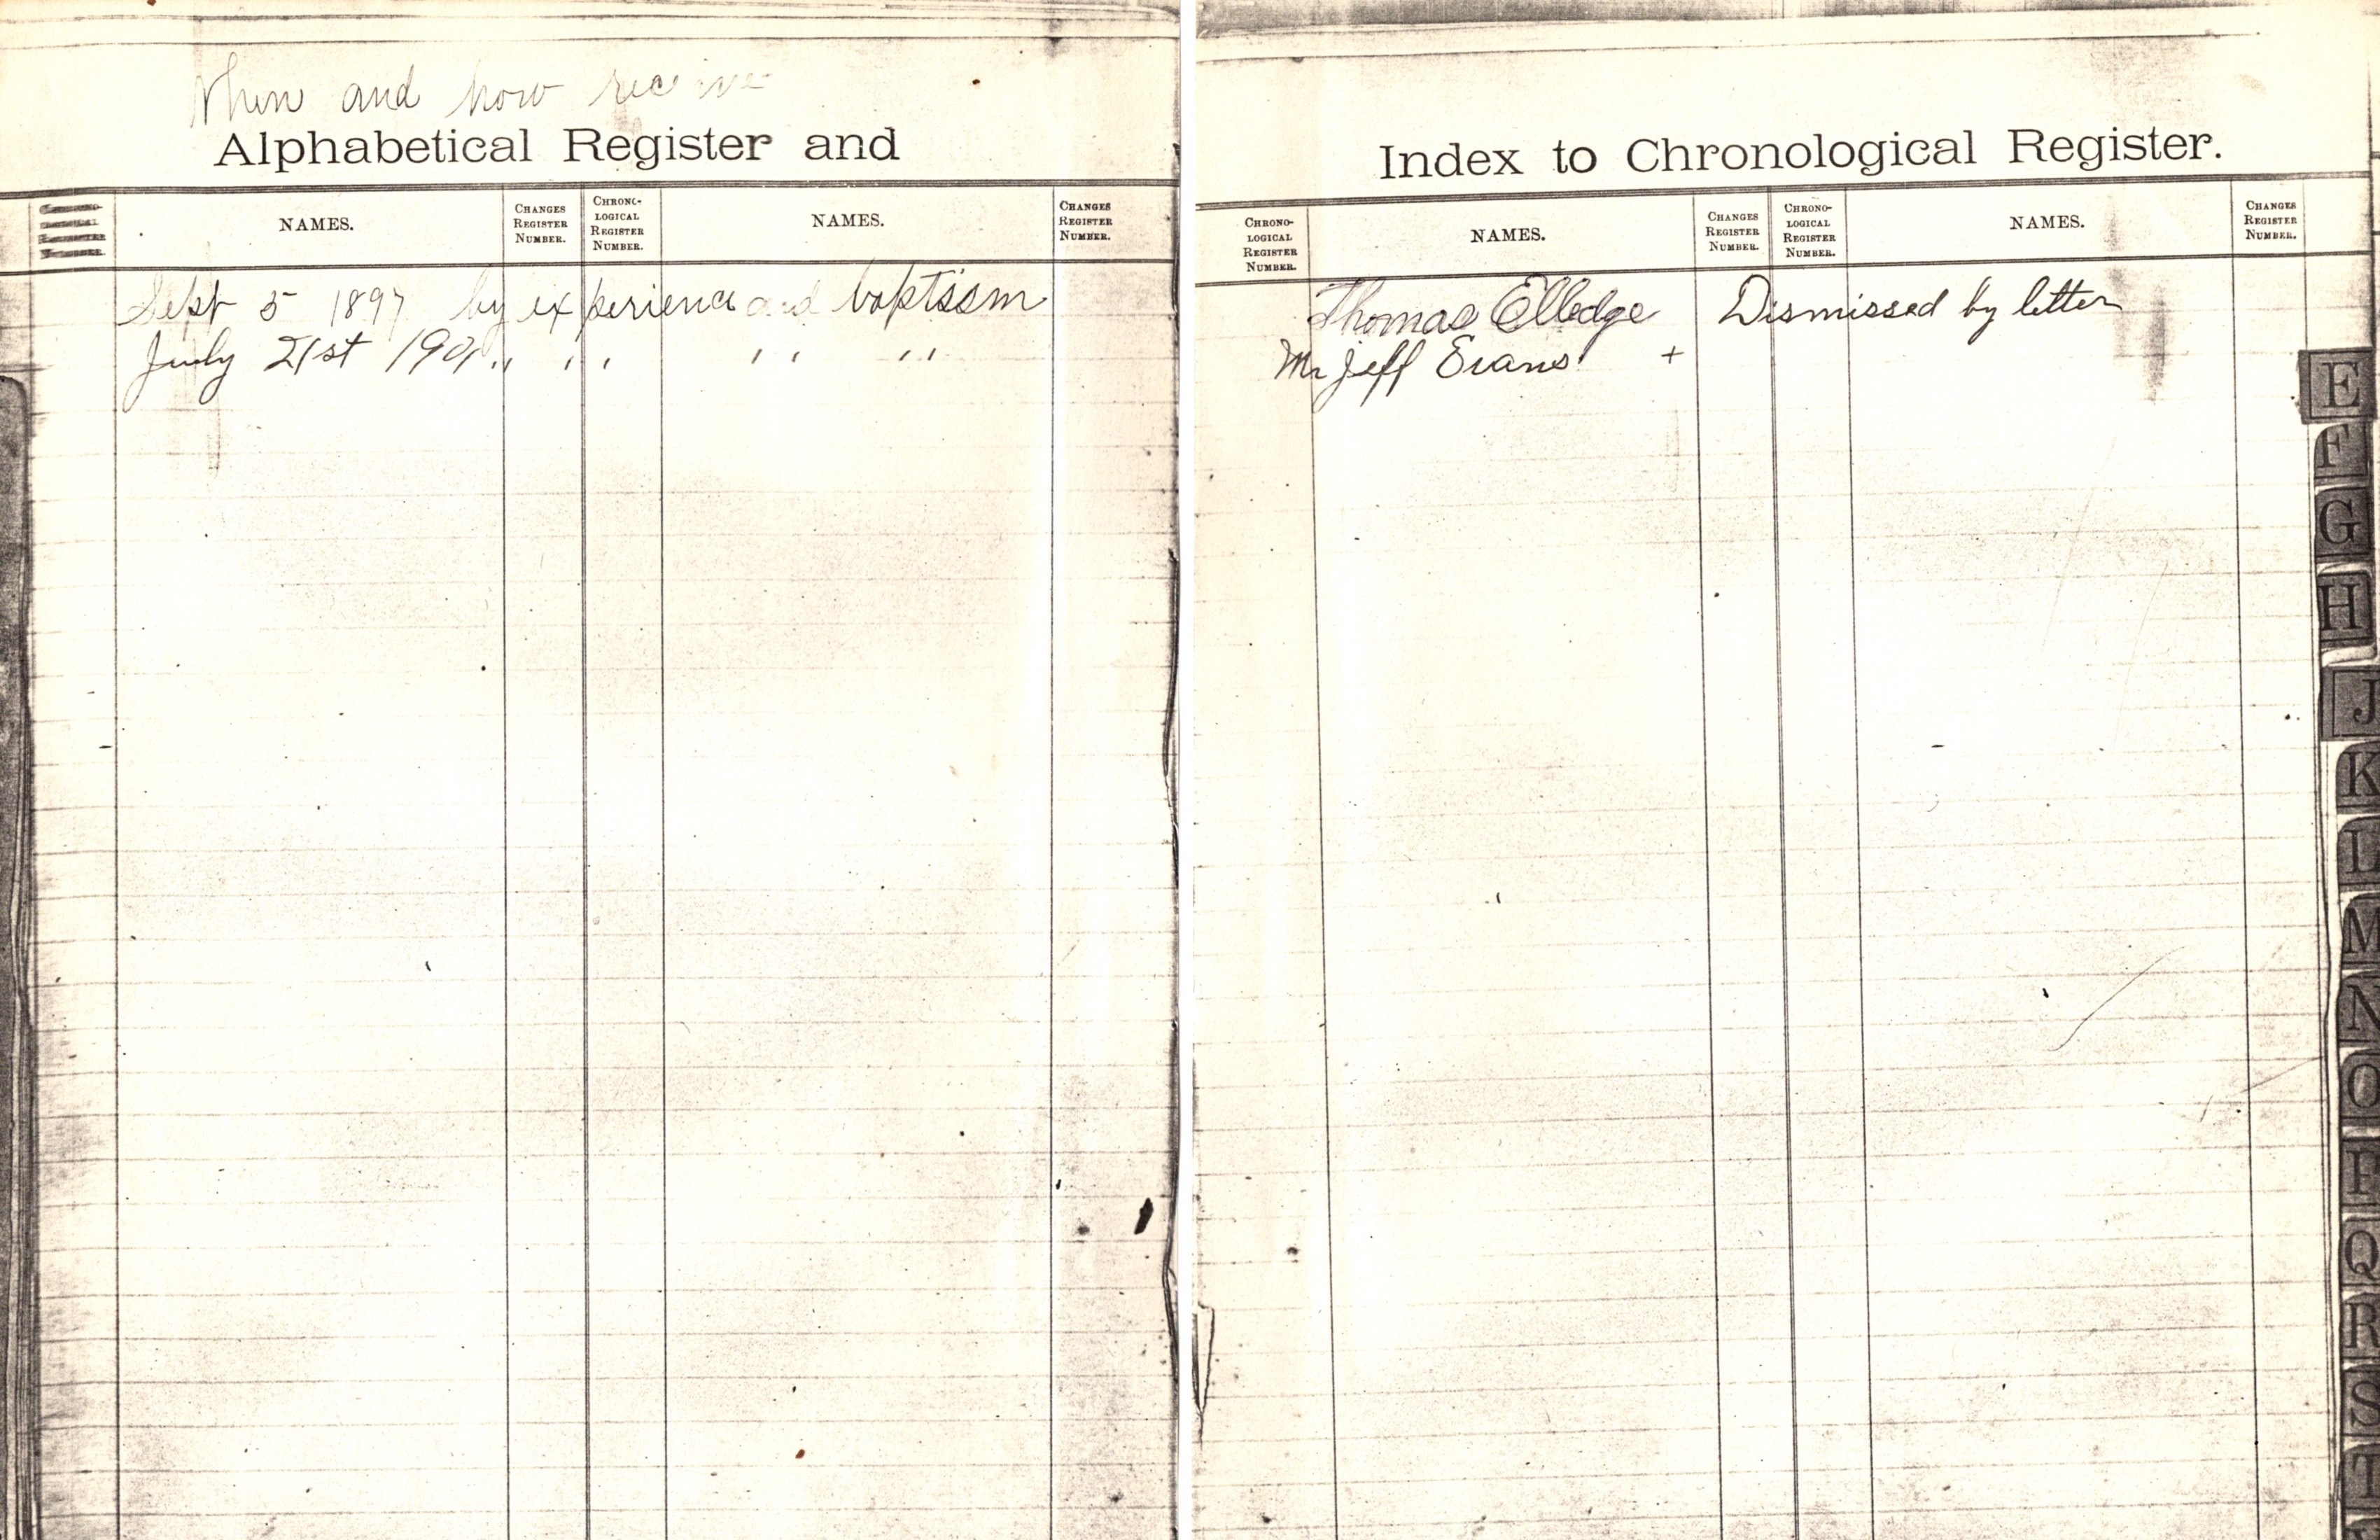 When and how receive
Alphabetical Register and
NAMES.
CHANGES
REGISTER
NUMBER.
CHRONO-
LOGICAL
REGISTER
NUMBER.
NAMES.
CHANGES
REGISTER
NUMBER.
Sept 5 1897 by experience and baptism
July 21st 190 " " " " "
Index to Chronological Register.
CHRONO-
LOGICAL
REGISTER
NUMBER.
NAMES.
CHANGES
REGISTER
NUMBER.
CHRONO-
LOGICAL
REGISTER
NUMBER.
NAMES.
CHANGES
REGISTER
NUMBER.
Thomas Elledge Dismissed by letter
Mr Jeff Evans +
E
F
G
H
J
K
L
M
N
O
P
Q
R
S
T